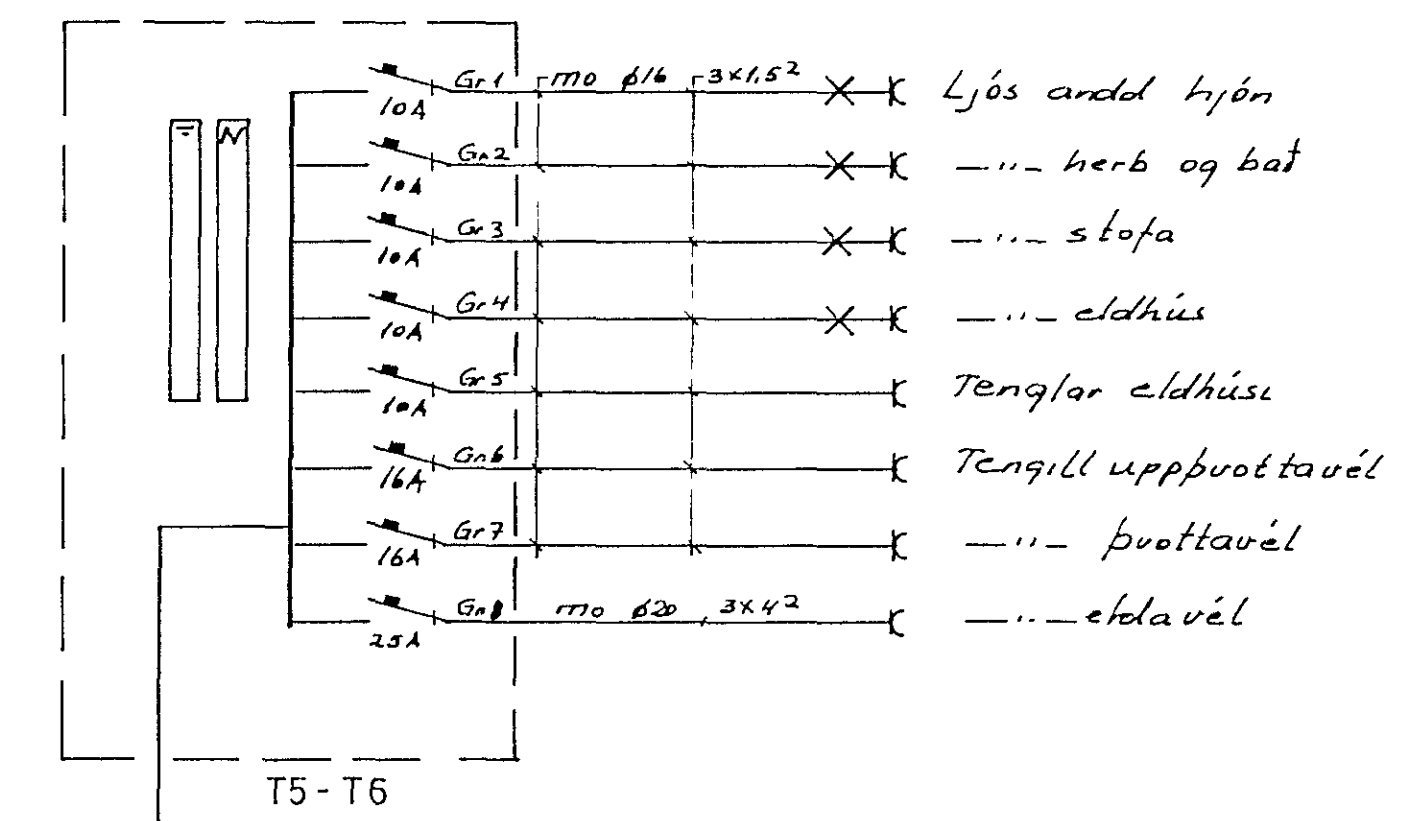 Gr1 mo ø16 3x1,5² Ljós andd hjón
10A
Gr2 —"— herb og bað
10A
Gr3 —"— stofa
10A
Gr4 —"— eldhús
10A
Gr5 Tenglar eldhúsi
10A
Gr6 Tengill uppþvottavél
16A
Gr7 —"— þvottavél
16A
Gr8 mo ø20 3x4² —"— eldavél
25A
T5 - T6